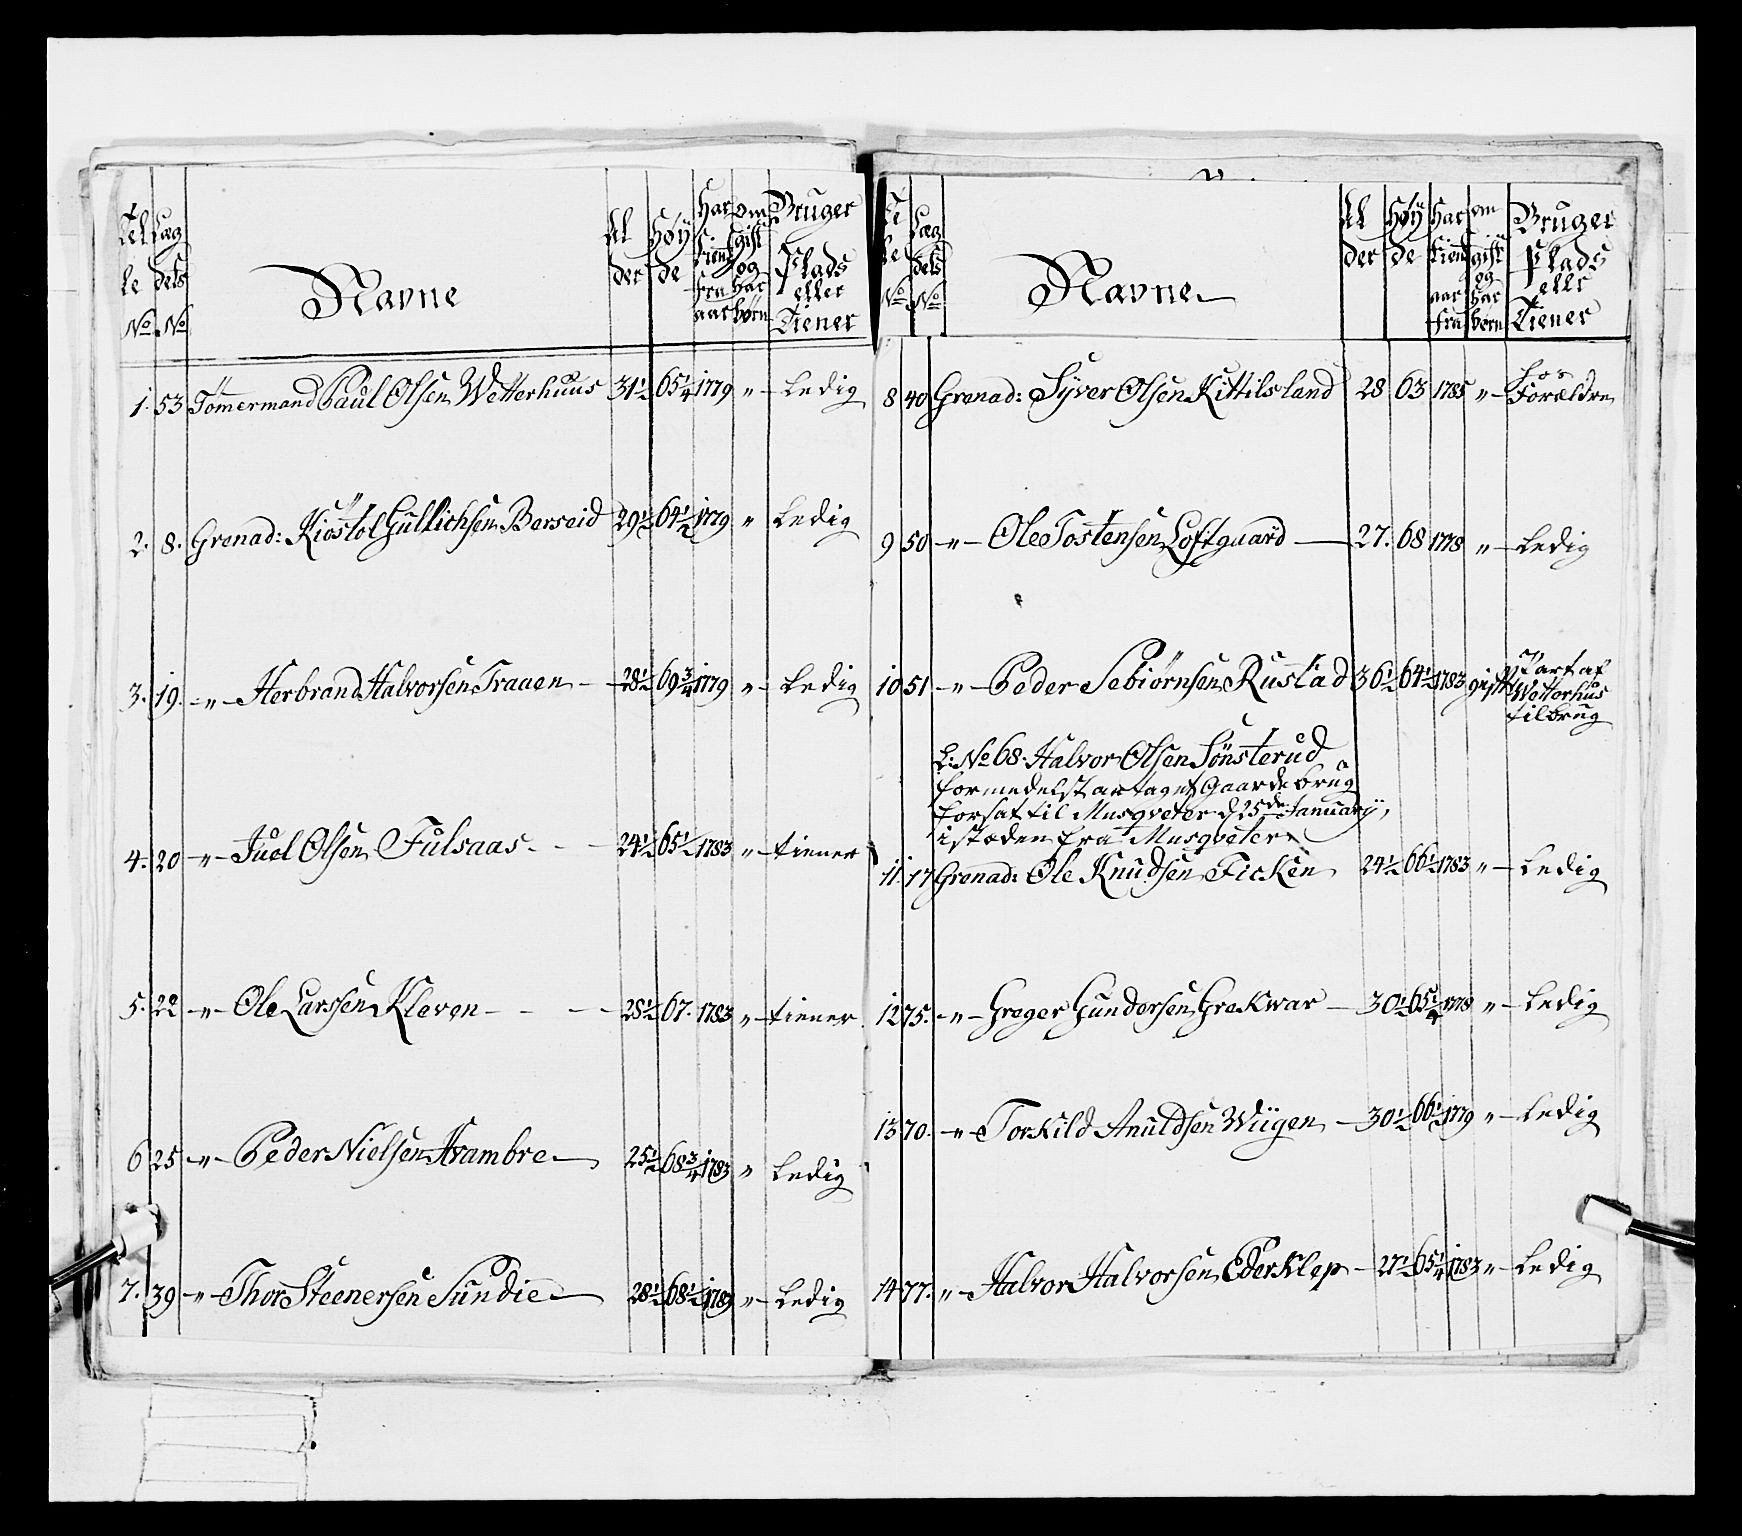 Tel Læg Al Høy Har om Bruger
le dels Navne der de tient gift Plads
No No fra og har eller
aar børn Tiener
1. 53 Tömermand Paul Olsen Wetterhuus 31½ 65¼ 1779 " Ledig
2. 8. Grenad: Kiöstol Gullichsen Berseid 29½ 64½ 1779 " Ledig
3. 19. -"- Herbrand Halvorsen Traaen 28½ 69¾ 1779 " Ledig
4. 20 -"- Juel Olsen Fulsaas 24½ 65½ 1783 " tiener
5. 22 -"- Ole Larssen Kleven 28½ 67. 1783 " tiener
6 25 -"- Peder Nielsen Krambre 25½ 68¾ 1783 " Ledig
7. 39 -"- Thor Steenersen Sundie 28½ 68½ 1783 " Ledig
Læg Al Høy Har om Bruger
le dels Navne der de tient gift Plads
No No og eller
aar har
fra børn Tiener
8 40 Grenad: Syver Olsen Kittilsland 28 63 1785 " hos
Forældre
9 50 -"- Ole Tostensen Loftgaard 27. 68 1778 " Ledig
10 51 -"- Peder Sebiörnsen Rustad 36½ 64½ 1783 gift Part af
Wetterhus
til brug
L: No 68. Halvor Olsen Sönsterud
formedelst antaget Gaardebrug
forsat til Musqveter d 25de January,
i stæden fra Musqveter
11. 17 Grenad: Ole Knudsen Ficken 24½ 66½ 1783 " Ledig
12 75. -"- Greger Gundersen Grekwar 30½ 65¼ 1778 " Ledig
13 70. -"- Torkild Anuldsen Wiigen 30½ 66½ 1779 " Ledig
14 77. " Halvor Halvorsen Ederklep 27½ 65¼ 1783 " Ledig